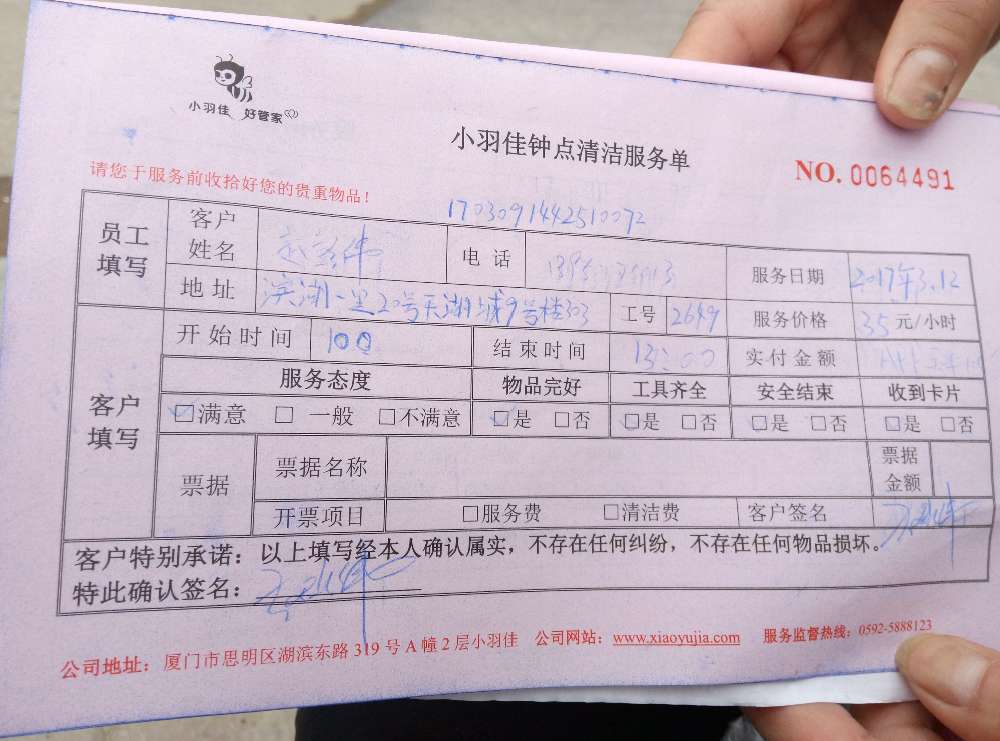 小羽佳 好管家
小羽佳钟点清洁服务单
NO. 0064491
请您于服务前收拾好您的贵重物品！
1703091442510072
员工填写
客户姓名
电话
服务日期 2017年3.12
地址 滨湖一里20号天湖城9号楼303
工号 2649
服务价格 35元/小时
客户填写
开始时间
结束时间 13:00
实付金额
服务态度 物品完好 工具齐全 安全结束 收到卡片
☑满意 □一般 □不满意 ☑是 □否 ☑是 □否 ☑是 □否 ☑是 □否
票据
票据名称
票据金额
开票项目 □服务费 □清洁费 客户签名
客户特别承诺：以上填写经本人确认属实，不存在任何纠纷，不存在任何物品损坏。
特此确认签名：
公司地址：厦门市思明区湖滨东路319号A幢2层小羽佳 公司网站：www.xiaoyujia.com 服务监督热线：0592-5888123